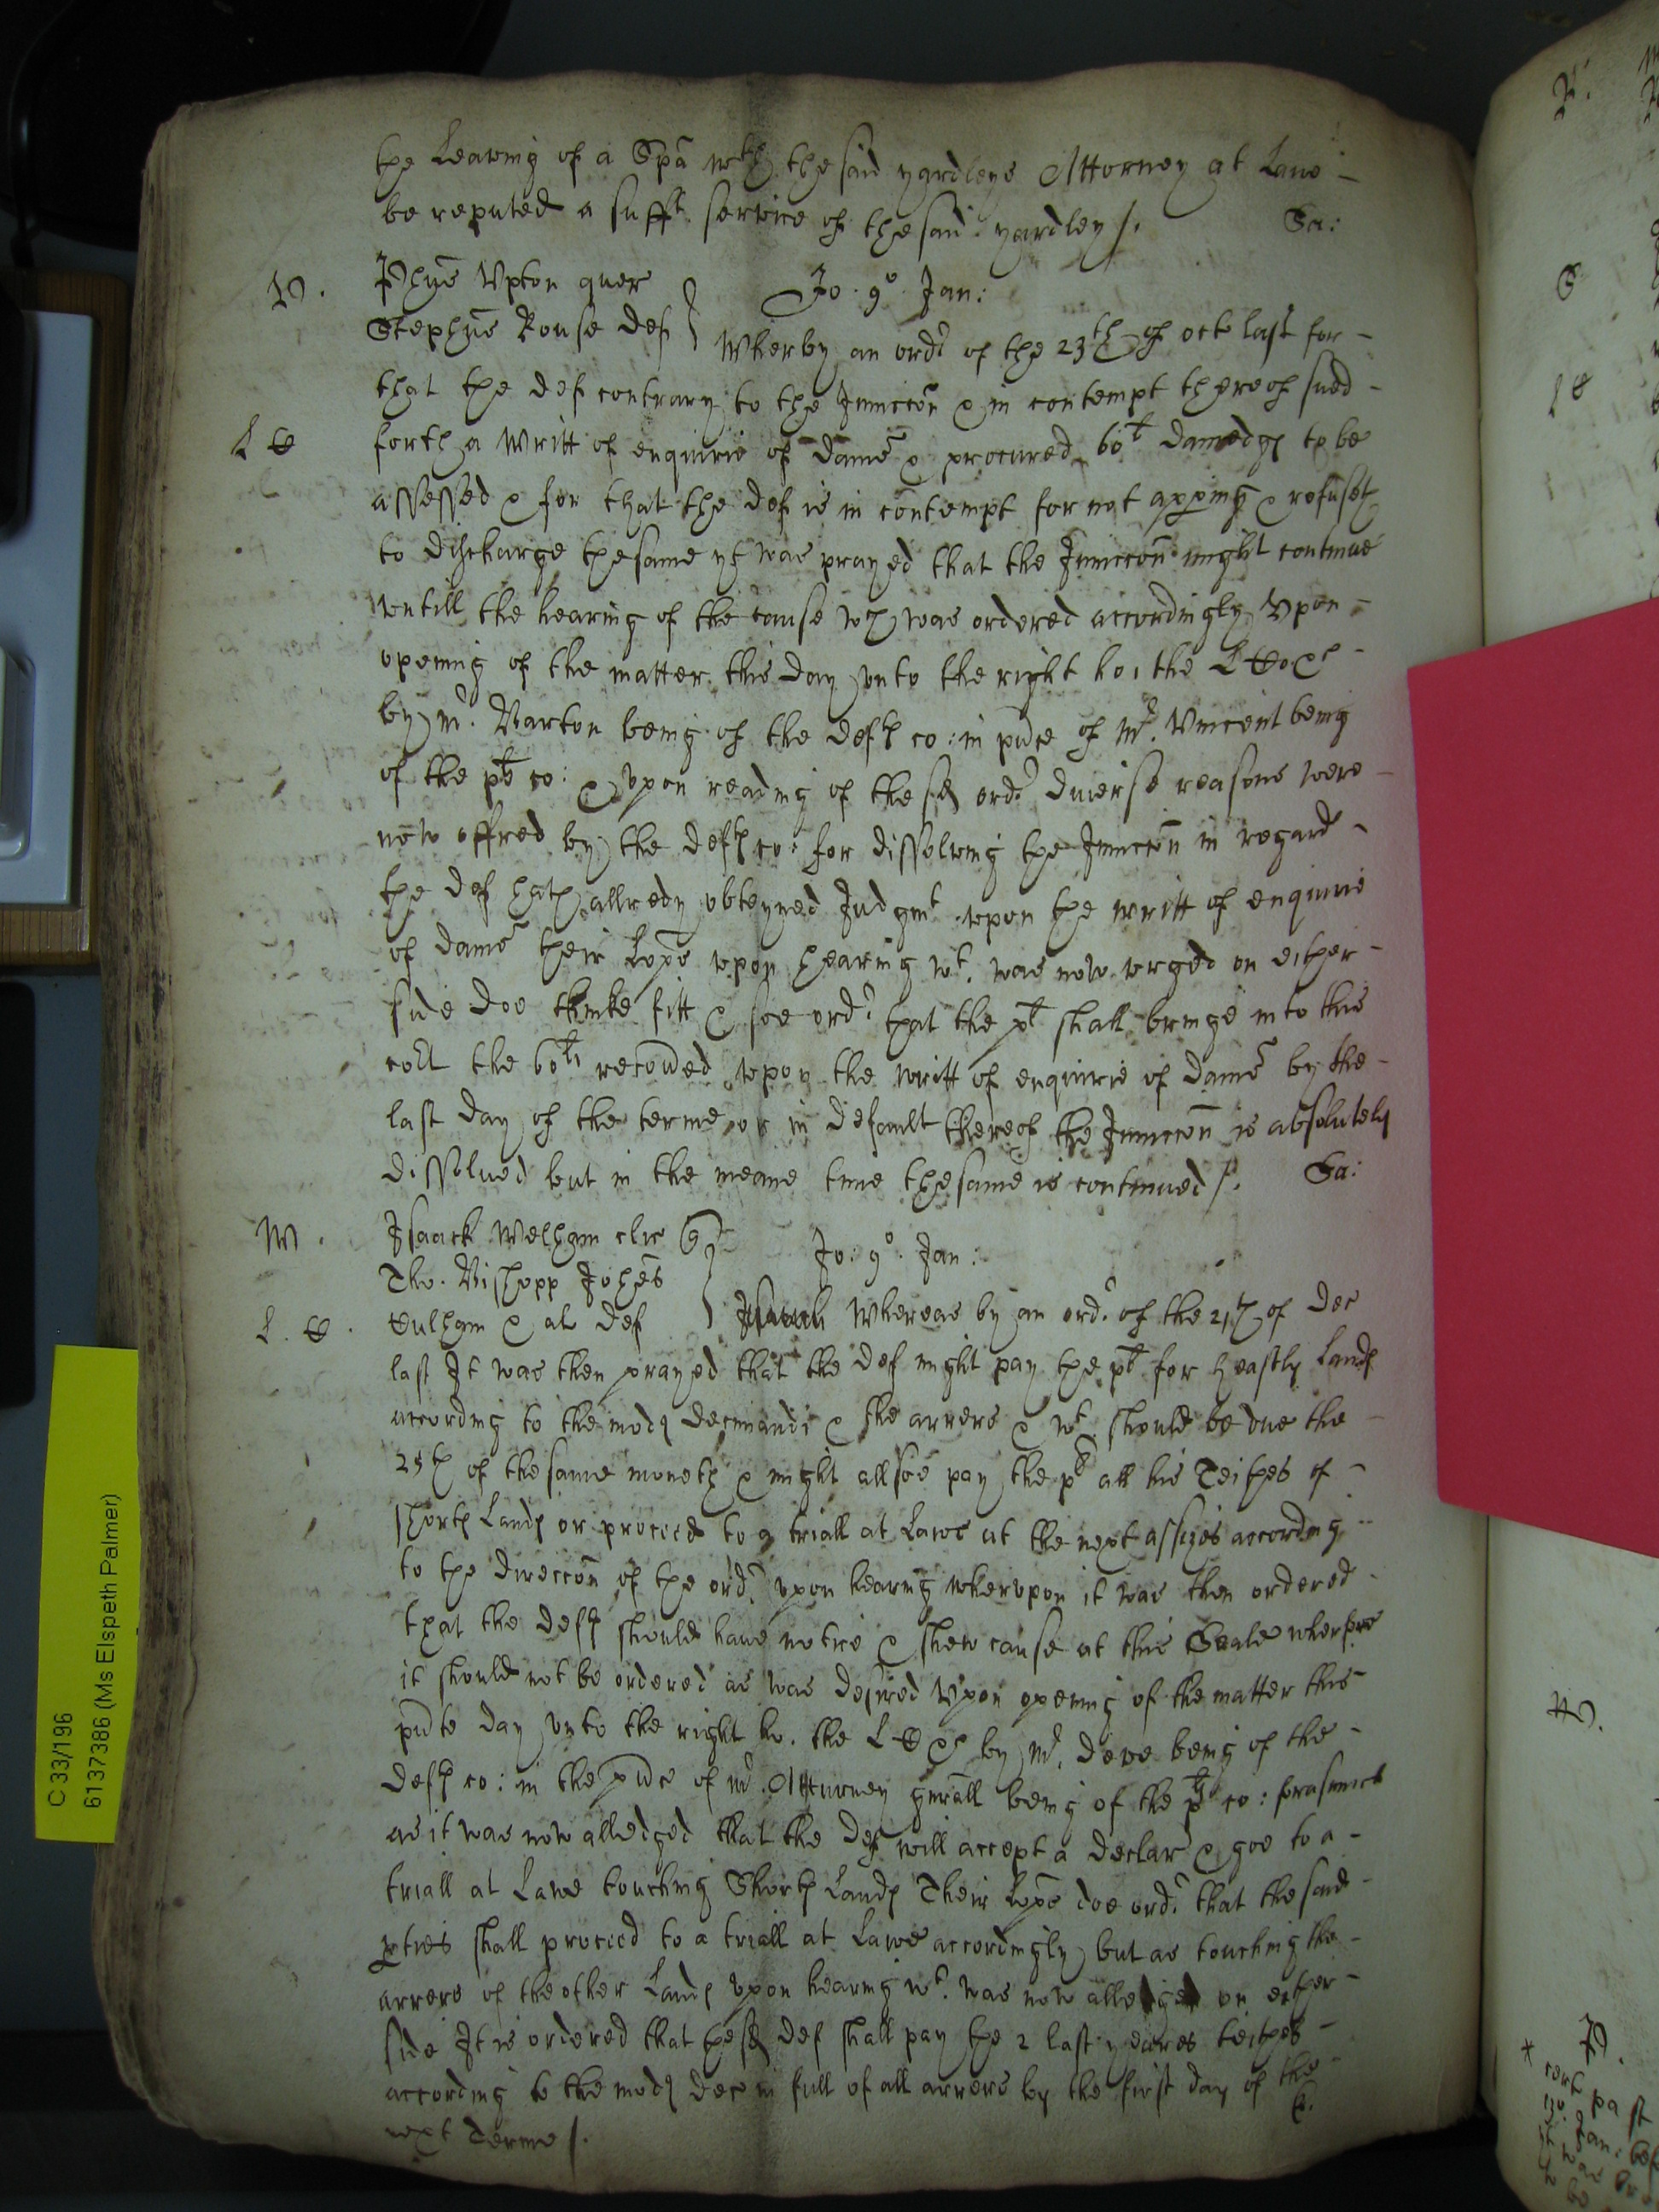 the leaving of a Spa wth the said yardleys Attorney at Lawe
be reputed a sufft service of the said yardley /. Sa:
V. Phus Vpton quer Jo. 9o. Jan:
Stephus Rouse def Wherby an ordr of the 23th of octo last for
that the def contrary to the Iniuccon & in contempt thereof sued
L C forth a Writt of enquirie of dame & procured 60l damedges to be
assessed & for that the def is in contempt for not apping & refuseth
to discharge the same yt was prayed that the Iniuccon might continue
vntill the hearing of the cause wch was ordered accordingly Vpon
opening of the matter this day vnto the right ho: the L Cors
by mr. Barton being of the defts co: in pnce of Mr. Vincent being
of the plt co: & vpon reading of the sd ordr diverse reasons were
now offred by the defts co: for dissolving the Iniuccon in regard
the def hath allredy obteyned Judgmt vpon the writt of enquirie
of dame their Lopps vpon hearing wt. was now vrged on either
side doe thinke fitt & soe ordr that the plt shall bringe into this
cort the 60li retorned vpon the writt of enquirie of dame by the
last day of the terme or in default thereof the Iniuccon is absolutely
dissolued but in the meane time the same is continued /. Sa:
W. Isaack Welham clic qr Jo: 9o. Jan:
Tho. Bishopp Johes
L. C. Culham & al def Whereas by an ordr of the 21th of Dec
last It was then prayed that the def might pay the plt for heastly Lands
according to the mods decimandi & the arrers & wt should be due the
25th of the same moneth & might allsoe pay the plt all his Teithes of
shorth Lands or proceed to a triall at Lawe at the next assizes according
to the direccon of the ordr vpon hearing whervpon it was then ordered
that the defts should have notice & shew cause at this Seale wherfore
it should not be ordered as was desired Vpon opening of the matter this
pnte day vnto the right ho. the L C by Mr. dewe being of the
defts co: in the pnce of mr. Atturney gnrall being of the plts co: forasmuch
as it was now alledged that the def will accept a declar & goe to a
triall at Lawe touching Shorth Lands Their Lopps doe ordr that the said
pties shall proceed to a triall at Lawe accordingly but as touching the
arrers of the other Lands vpon hearing wt. was now alledged on either
side It is ordered that the sd def shall pay the 2 last yeares teithes
according to the mods dece in full of all arrers by the first day of the
next Terme /. C.
C 33/196
6137386 (Ms Elspeth Palmer)